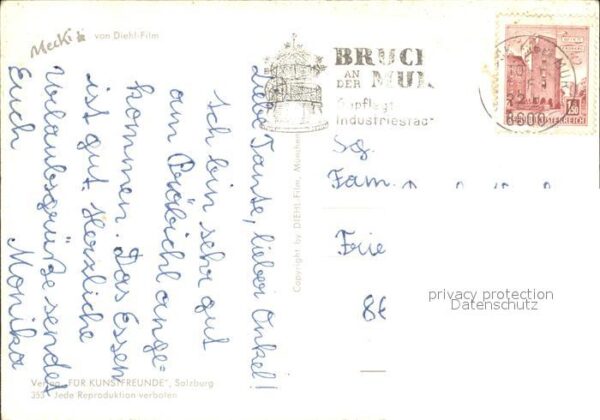 Mecki von Diehl-Film
Liebe Tante, lieber Onkel!
Ich bin sehr gut
am Präbichl ange-
kommen. Das Essen
ist gut. Herzliche
Urlaubsgrüße sendet
Euch Monika
Copyright by DIEHL-Film, München
Verlag „FÜR KUNSTFREUNDE", Salzburg
353 Jede Reproduktion verboten
BRUCK
AN DER MUR
Gepflegte
Industriestadt
S 3.60
REPUBLIK ÖSTERREICH
Fam.
privacy protection
Datenschutz